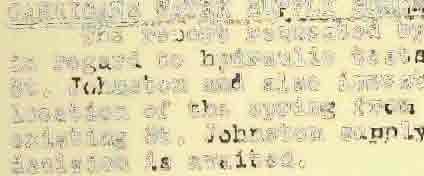 WATER SUPPLY
The report requested by
in regard to hydraulic tests
St. Johnston and also invest
location of the spring from
existing St. Johnston supply
decision is awaited.